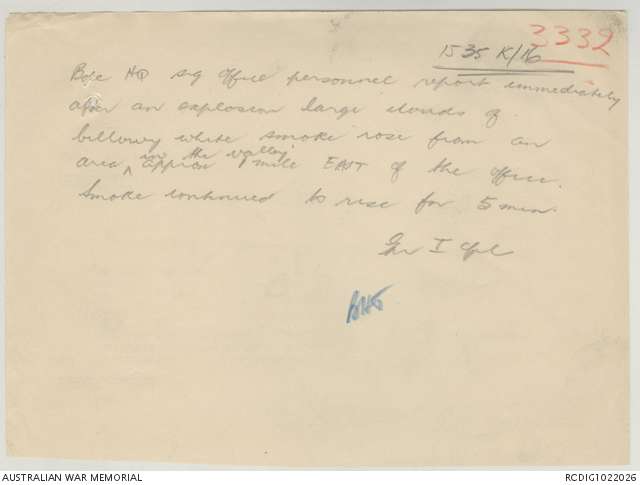 3332
1535 K/16
Bde HQ sig Office personnel report immediately
after an explosion large clouds of
billowy white smoke rose from an
in the valley
area ^ approx 1 mile EAST of the office.
Smoke continued to rise for 5 min.
I Cpl
AUSTRALIAN WAR MEMORIAL
RCDIG1022026